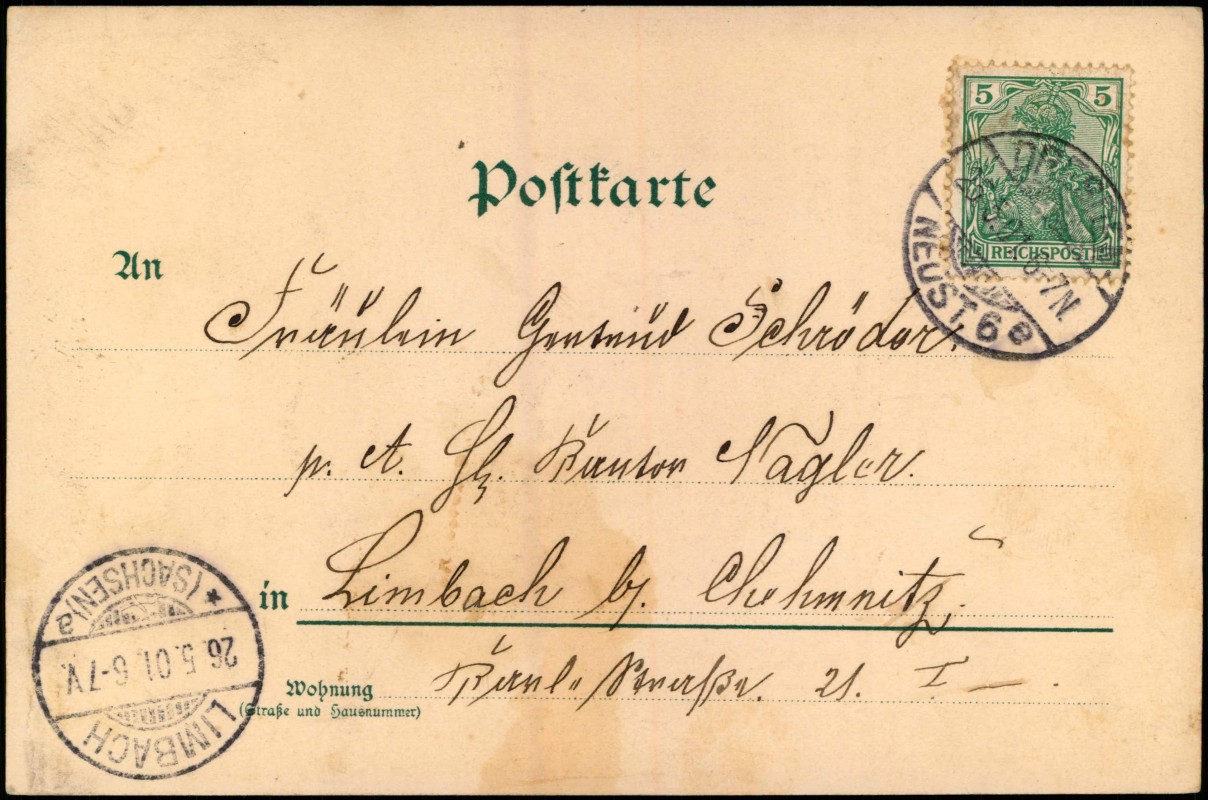 5 5
REICHSPOST
DRESDEN
NEUST 6 e
6-7N
Postkarte
An
Fräulein Gertrud Schröder.
p. A. H. Kantor Nagler.
in Limbach b. Chehmnitz,
Wohnung
(Straße und Hausnummer)
Karl-Straße. 21. I.
* (SACHSEN) a
26.5.01. 6-7V.
LIMBACH